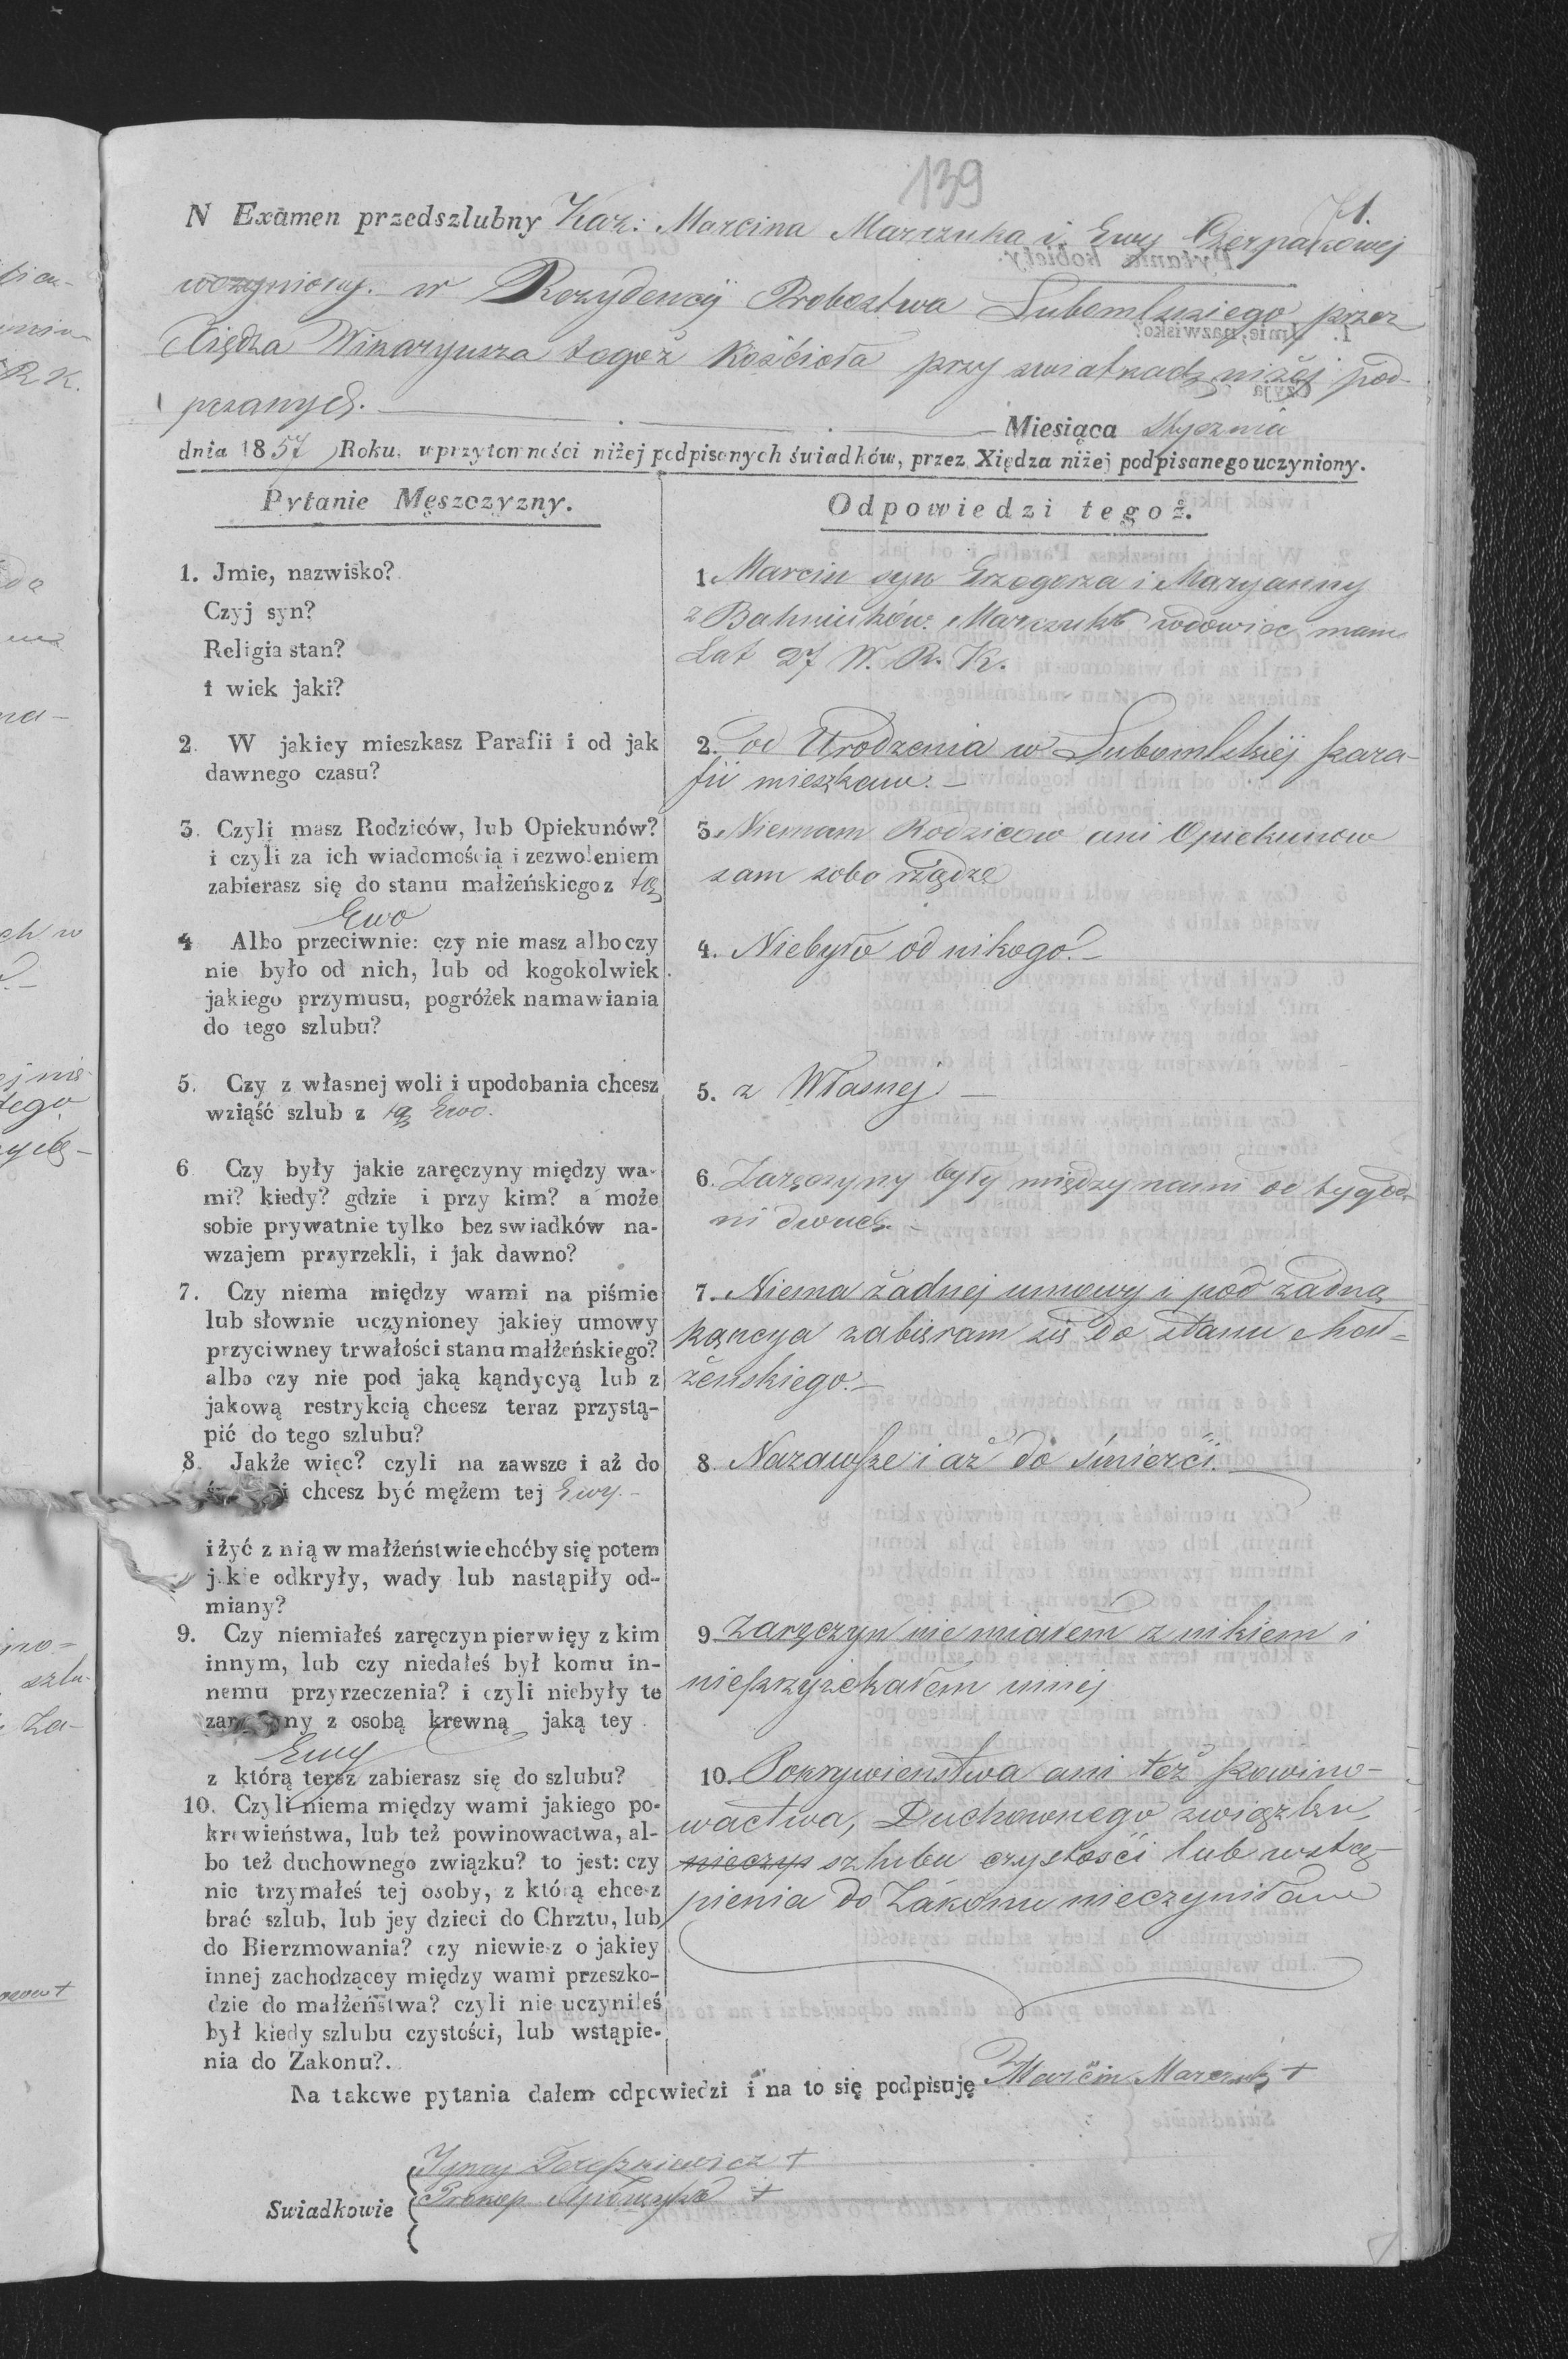 139
71.
N Exâmen przedszlubny Kaz: Marcina Marczuka i Ewy Czerpakowej
uczyniony. w Rezydencij Probostwa Lubomlskiego przez
Xiędza Wikaryusza tegoż Kościoła przy swiatkach niżej pod-
pisanych.
Miesiąca Stycznia
dnia 1857 Roku, w przytomności niżej podpisanych świadków, przez Xiędza niżej podpisanego uczyniony.
Pytanie Męszczyzny.
1. Jmie, nazwisko?
Czyj syn?
Religia stan?
i wiek jaki?
2. W jakiey mieszkasz Parafii i od jak
dawnego czasu?
3. Czyli masz Rodziców, lub Opiekunów?
i czyli za ich wiadomością i zezwoleniem
zabierasz się do stanu małżeńskiego z tą
Ewo
4 Albo przeciwnie: czy nie masz albo czy
nie było od nich, lub od kogokolwiek
jakiego przymusu, pogróżek namawiania
do tego szlubu?
5. Czy z własnej woli i upodobania chcesz
wziąść szlub z tą Ewo.
6 Czy były jakie zaręczyny między wa-
mi? kiedy? gdzie i przy kim? a może
sobie prywatnie tylko bez swiadków na-
wzajem przyrzekli, i jak dawno?
7. Czy niema między wami na piśmie
lub słownie uczynioney jakiey umowy
przyciwney trwałości stanu małżeńskiego?
albo czy nie pod jaką kąndycyą lub z
jakową restrykcią chcesz teraz przystą-
pić do tego szlubu?
8. Jakże więc? czyli na zawsze i aż do
chcesz być mężem tej Ewy.
i żyć z nią w małżeństwie choćby się potem
jakie odkryły, wady lub nastąpiły od-
miany?
9. Czy niemiałeś zaręczyn pierwięy z kim
innym, lub czy niedałeś był komu in-
nemu przyrzeczenia? i czyli niebyły te
zaręczyny z osobą krewną jaką tey
Ewy
z którą teraz zabierasz się do szlubu?
10. Czyli niema między wami jakiego po-
krewieństwa, lub też powinowactwa, al-
bo też duchownego związku? to jest: czy
nie trzymałeś tej osoby, z którą chcesz
brać szlub, lub jey dzieci do Chrztu, lub
do Bierzmowania? czy niewiesz o jakiey
innej zachodzącey między wami przeszko-
dzie do małżeństwa? czyli nie uczyniłeś
był kiedy szlubu czystości, lub wstąpie-
nia do Zakonu?
Odpowiedzi tegoż.
1. Marcin syn Grzegorza i Maryanny
z Bahniuków Marczuk wdowiec mam
Lat 27 W. R. K.
2. od Urodzenia w Lubomlskiéj para-
fii mieszkam.
3. Niemam Rodzicow ani Opiekunow
sam sobo rządzę
4. Niebyło od nikogo.
5. z Własnej
6. Zaręczyny były między nami od tygod
ni dwuch.
7. Niema żadnej umowy i pod żadną
kąncya zabieram sie do stanu Mał=
żenskiego.
8. Nazawsze i aż do śmierći.
9. Zaręczyn nie miałem z nikiem i
nieprzyżekałem innej
10. Pokrywienstwa ani też powino-
wactwa, Duchownego związku
nieczys szlubu czystości lub wstą-
pienia do Zakonu nieczyniłem
Na takowe pytania dałem odpowiedzi i na to się podpisuję Marcin Marczuk +
Swiadkowie
Prokop +